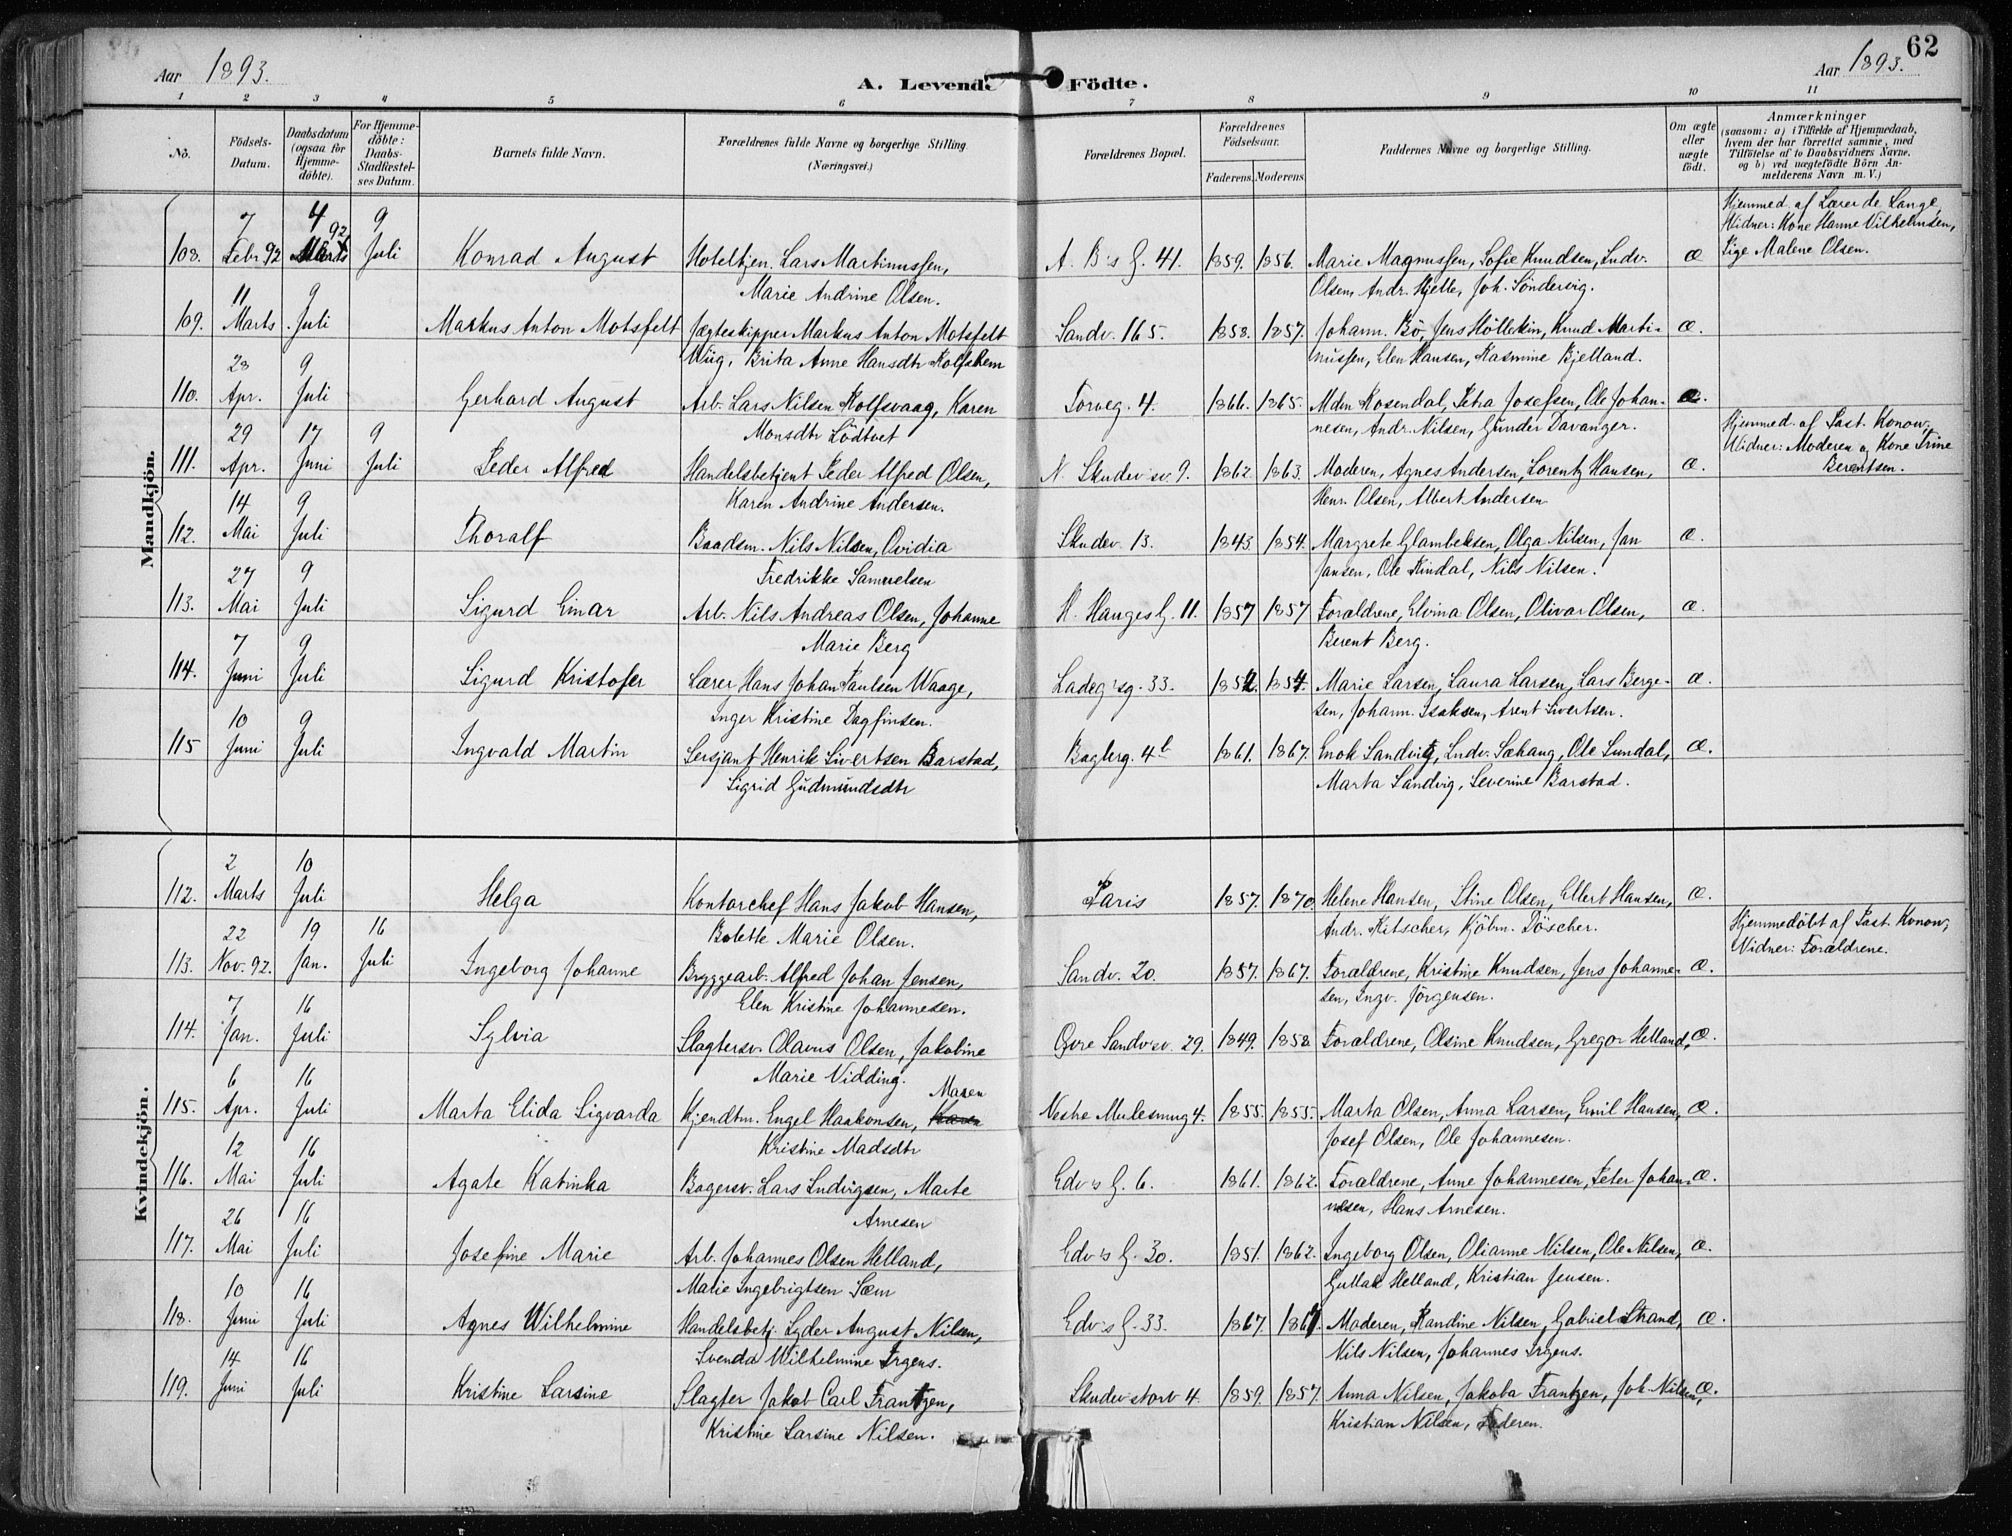 62
Aar 1893.
A. Levende Födte.
Aar 1893.
1 2 3 4 5 6 7 8 9 10 11
No.
Födsels-Datum.
Daabsdatum (ogsaa for Hjemme-döbte).
For Hjemme-döbte: Daabs-Stadfæstel-ses Datum.
Barnets fulde Navn.
Forældrenes fulde Navne og borgerlige Stilling. (Næringsvei.)
Forældrenes Bopæl.
Forældrenes Födselsaar.
Faderens. Moderens.
Faddernes Navne og borgerlige Stilling.
Om ægte eller uægte födt.
Anmærkninger
(saasom: a) i Tilfælde af Hjemmedaab,
hvem der har forrettet samme, med
Tilföielse af to Daabsvidners Navne,
og b) ved uægtefödte Börn An-
melderens Navn m. V.)
Mandkjön.
7 4 92 9 Hjemmed. af Lærer de Lange,
Vidner: Kone Hanne Vilhelmsen,
108. Febr 92 Marts Juli Konrad August Hoteltjen. Lars Martinussen, A. B's G. 41. 1859. 1856. Marie Magnussen, Sofie Knudsen, Ludv. Æ Pige Malene Olsen.
Marie Andrine Olsen. Olsen, Andr. Hjelle, Joh. Söndervig.
11 9
109. Marts. Juli Markus Anton Motsfelt Jægteskipper Markus Anton Motsfelt Sandv. 165. 1858. 1857. Johann. Bö, Jens Höllekin, Knud Marti- Æ.
Wiig, Brita Anne Hansdtr Rolfshem nussen, Elen Hansen, Rasmine Bjelland.
23 9
110. Apr. Juli Gerhard August Arb. Lars Nilsen Rolfsvaag, Karen Torveg. 4. 1866. 1865. Mdm Rosendal, Petra Josefsen, Ole Johan- Æ.
Monsdtr Lödtvet nesen, Andr. Nilsen, Gunder Davanger.
29 17 9 Hjemmed. af Past. Konow,
111. Apr. Juni Juli Peder Alfred Handelsbetjent Peder Alfred Olsen, N. Skudev'sv. 9. 1862. 1863. Moderen, Agnes Andersen, Lorentz Hansen, Æ. Vidner: Moderen og Kone Trine
Berentsen.
Karen Andrine Andersen. Henr. Olsen, Albert Andersen
14 9
112. Mai Juli Thoralf Baadsm. Nils Nilsen, Ovidia Skudev. 13. 1843 1854. Margrete Glambeksen, Olga Nilsen, Jan Æ.
Fredrikke Samuelsen Jansen, Ole Rindal, Nils Nilsen.
27 9
113. Mai Juli Sigurd Einar Arb. Nils Andreas Olsen, Johanne H. Hauges G. 11. 1857 1857 Forældrene, Elvina Olsen, Olivar Olsen, Æ.
Marie Berg Berent Berg.
7 9
114. Juni Juli Sigurd Kristofer Lærer Hans Johan Paulsen Waage, Ladeg'sg. 33. 1852. 1854. Marie Larsen, Laura Larsen, Lars Berge- Æ.
Inger Kristine Dagfinsen. sen, Johann. Isaksen, Arent Sivertsen.
10 9
115 Juni Juli Ingvald Martin Sersjant Henrik Sivertsen Barstad, Bagerg. 4b 1861. 1867. Enok Sandvig, Ludv. Sæhaug, Ole Sundal, Æ.
Sigrid Gudmundsdtr Marta Sandvig, Severine Barstad.
Kvindekjön.
2 10
112. Marts Juli Helga Kontorchef Hans Jakob Hansen, Paris 1857. 1870. Helene Hansen, Stine Olsen, Ellert Hansen, Æ.
Bolette Marie Olsen. Andr. Kitscher, Kjöbm. Döscher.
22 19 16 Hjemmedöbt af Past. Konow,
113. Nov. 92. Jan. Juli Ingeborg Johanne Bryggearb. Alfred Johan Jensen, Sandv. 20. 1857. 1867. Forældrene, Kristine Knudsen, Jens Johanne- Æ. Vidner: Forældrene.
Elen Kristine Johannesen. sen, Ingv. Jörgensen.
7 16
114. Jan. Juli Sylvia Slagtersv. Olavus Olsen, Jakobine Övre Sandv'sv. 29. 1849. 1858 Forældrene, Olsine Knudsen, Gregor Helland, Æ.
Marie Vidding.
6 16 Maren
115. Apr. Juli Marta Elida Sigvarda Kjendtm. Engel Haakonsen, Karen Nedre Mulesmug 4. 1855. 1855. Marta Olsen, Anna Larsen, Emil Hansen, Æ.
Kristine Madsdtr Josef Olsen, Ole Johannesen.
12 16
116. Mai Juli Agate Katinka Bagersv. Lars Ludvigsen, Marte Edv's G. 6. 1861. 1862. Forældrene, Anne Johannesen, Peter Johan- Æ.
Arnesen nesen, Hans Arnesen.
26 16
117. Mai Juli Josefine Marie Arb. Johannes Olsen Helland, Edv's G. 30. 1851. 1862. Ingeborg Olsen, Olianne Nilsen, Ole Nilsen, Æ.
Marie Ingebrigtsen Sæm Gullak Helland, Kristian Jensen.
10 16
118. Juni Juli Agnes Wilhelmine Handelsbetj. Lyder August Nilsen, Edv's G. 33. 1867. 1867. Moderen, Randine Nilsen, Gabriel Strand, Æ.
Svenda Wilhelmine Irgens. Nils Nilsen, Johannes Irgens.
14 16
119. Juni Juli Kristine Larsine Slagter Jakob Carl Frantzen, Skudev'storv 4. 1859. 1857. Anna Nilsen, Jakoba Frantzen, Joh. Nilsen, Æ.
Kristine Larsine Nilsen. Kristian Nilsen, Faderen.